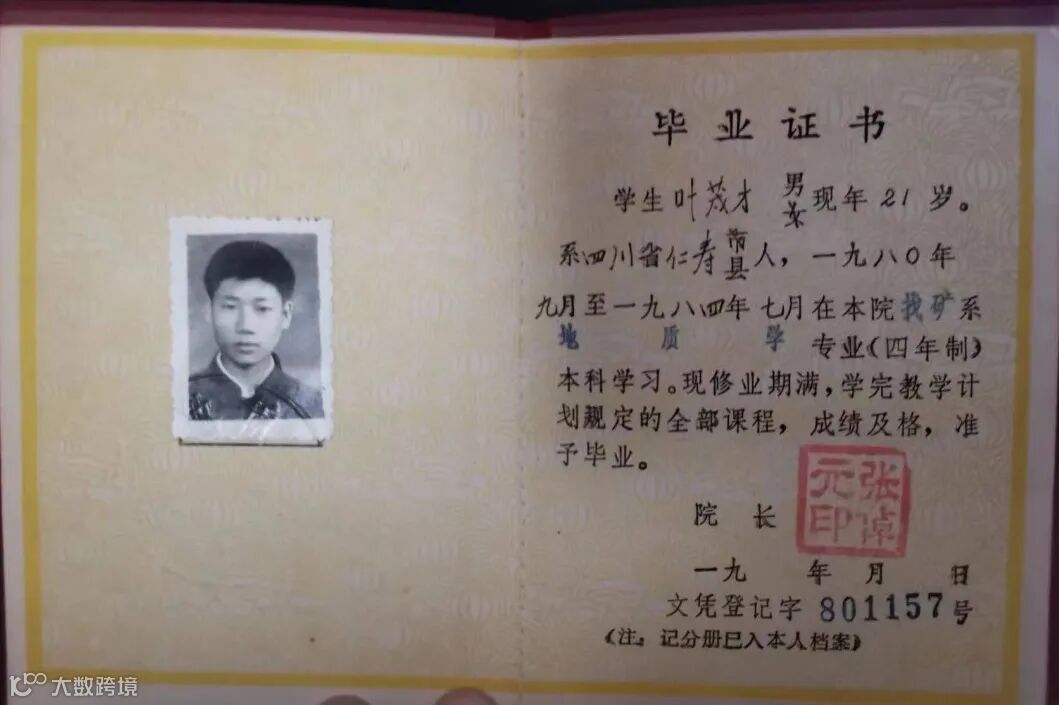 毕业证书
学生叶茂才 男女现年21岁。
系四川省仁寿市县人，一九八〇年
九月至一九八四年七月在本院找矿系
地质学 专业(四年制)
本科学习。现修业期满，学完教学计
划规定的全部课程，成绩及格，准
予毕业。
院长
张倬元印
一九 年 月 日
文凭登记字801157号
(注：记分册已入本人档案)
大数跨境